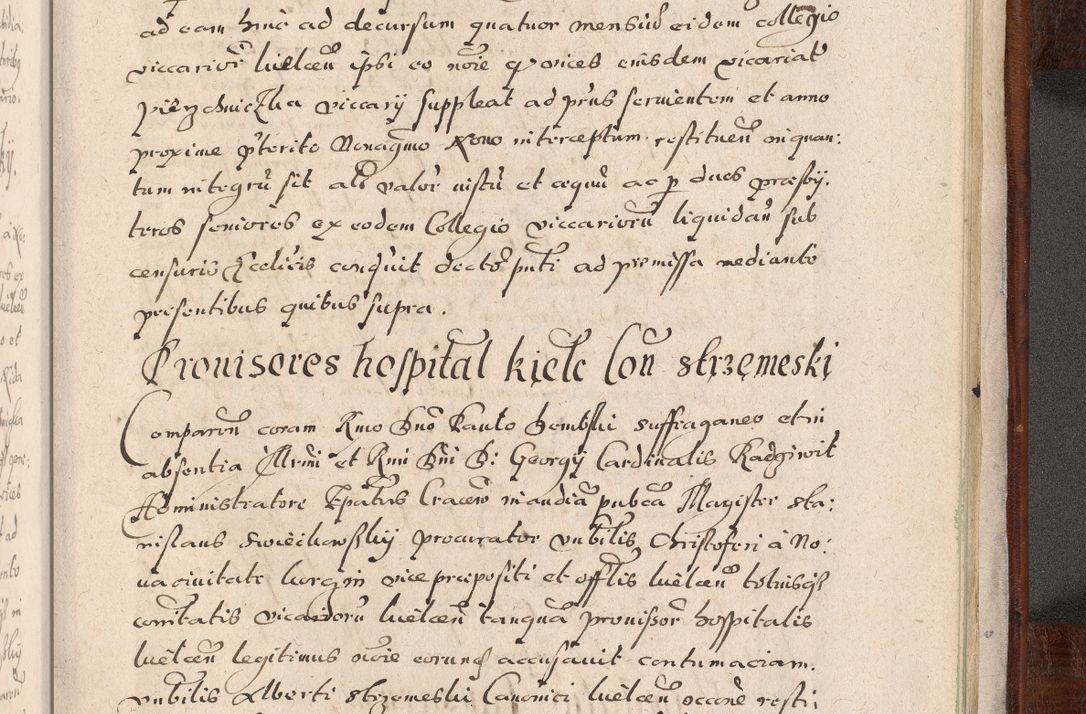 ad eam hinc ad decursum quatuor mensiū eidem collegio
viccariorͬ kielceñ ipsi eo nōie qͩ vices eiusdem vicariat9
Pierzchniczka viccarÿ suppleat ad prius seruientem et anno
proxime pͬterito Nonagmo Xono interceptum restitueñ in quan:
tum integrū sit als valor iustū et æquū ac p duos præsby:
teros seniores ex eodem Collegio viccariorū liquidañ sub
censuris Ecclicis conduit dectos pͬnti ad premissa mediante
presentibus quibus supra.
Prouisores hospital kielc Con strzemeski
Comparen̄ coram Rmo Dno Paulo Dembski suffraganeo et in
absentia Illrmi et Rmi Dni D: Georgÿ Cardinalis Radziwit
Administratore Epatus Cracew in audiā pubcā Magister sta:
nislaus swiecihowskÿ procurator vnbilis Christoferi à No:
ua ciuitate korgin vice præpositi et offlis kielceñ totiusqз
comtatis vicariorū kielceñ tanquā prouisor hospitalis
kielceñ legitimus nōie eorundͫ accusauit contumaciam.
vnbilis Alberti strzemeski Canonici kielceñ occone resti: